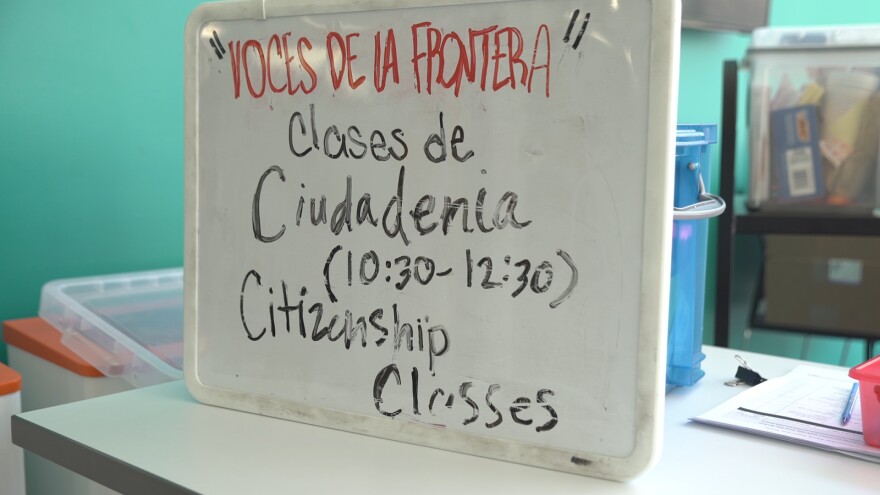 "VOCES DE LA FRONTERA"
Clases de
Ciudadenia
(10:30-12:30)
Citizenship
Classes